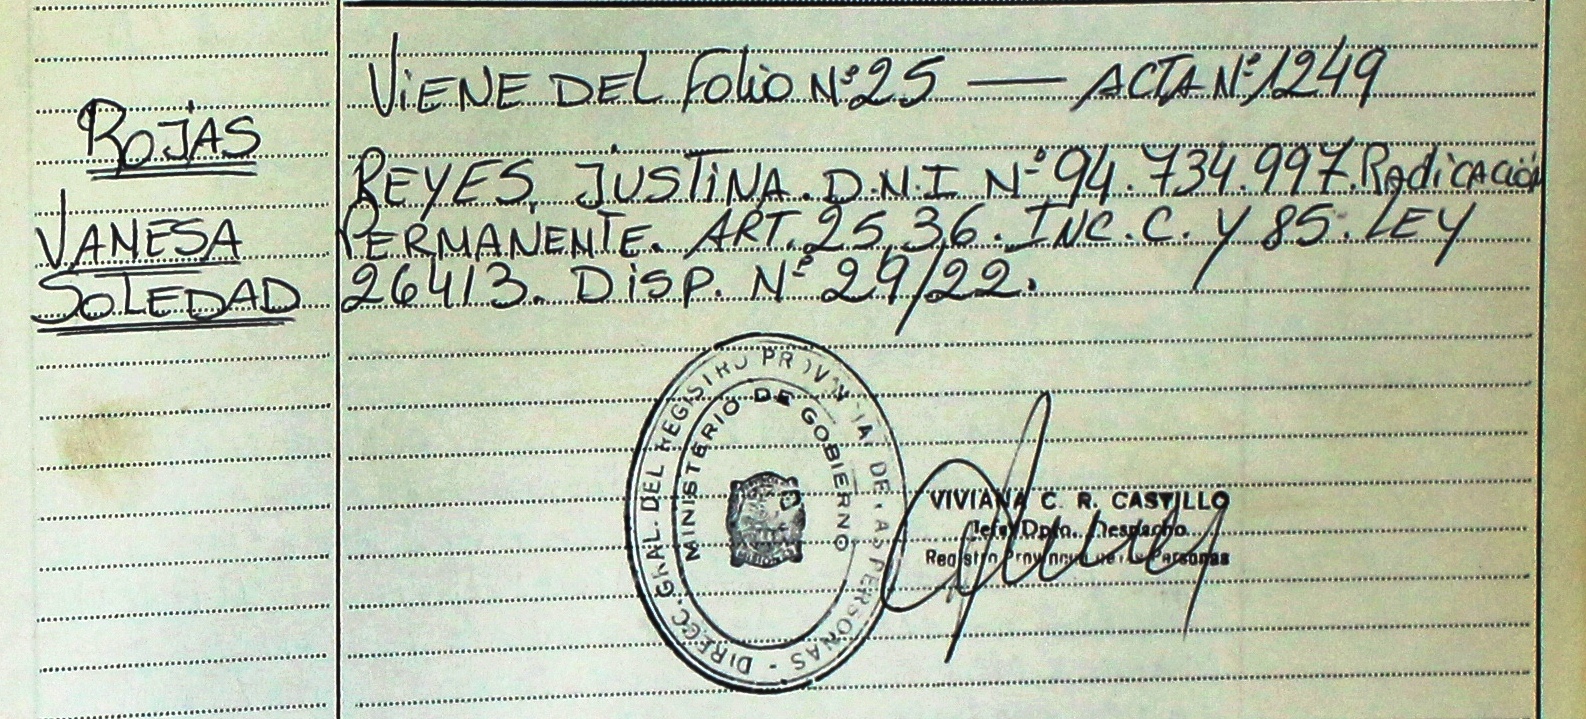 ROJAS
VANESA
SOLEDAD
ViENE DEL foliO Nº 25 — ACTA Nº 1249
REYES, JUSTiNA. D.N.I Nº 94.734.997. RadicACión
PERMANENTE. ART. 25,36. INC. C. Y 85. LEY
26413. DiSP. Nº 29/22.
DIRECC. GRAL. DEL REGISTRO PROVINCIAL DE LAS PERSONAS -
MINISTERIO DE GOBIERNO
VIVIANA C. R. CASTILLO
Jefe Dpto. Despacho
Registro Provincial de las Personas